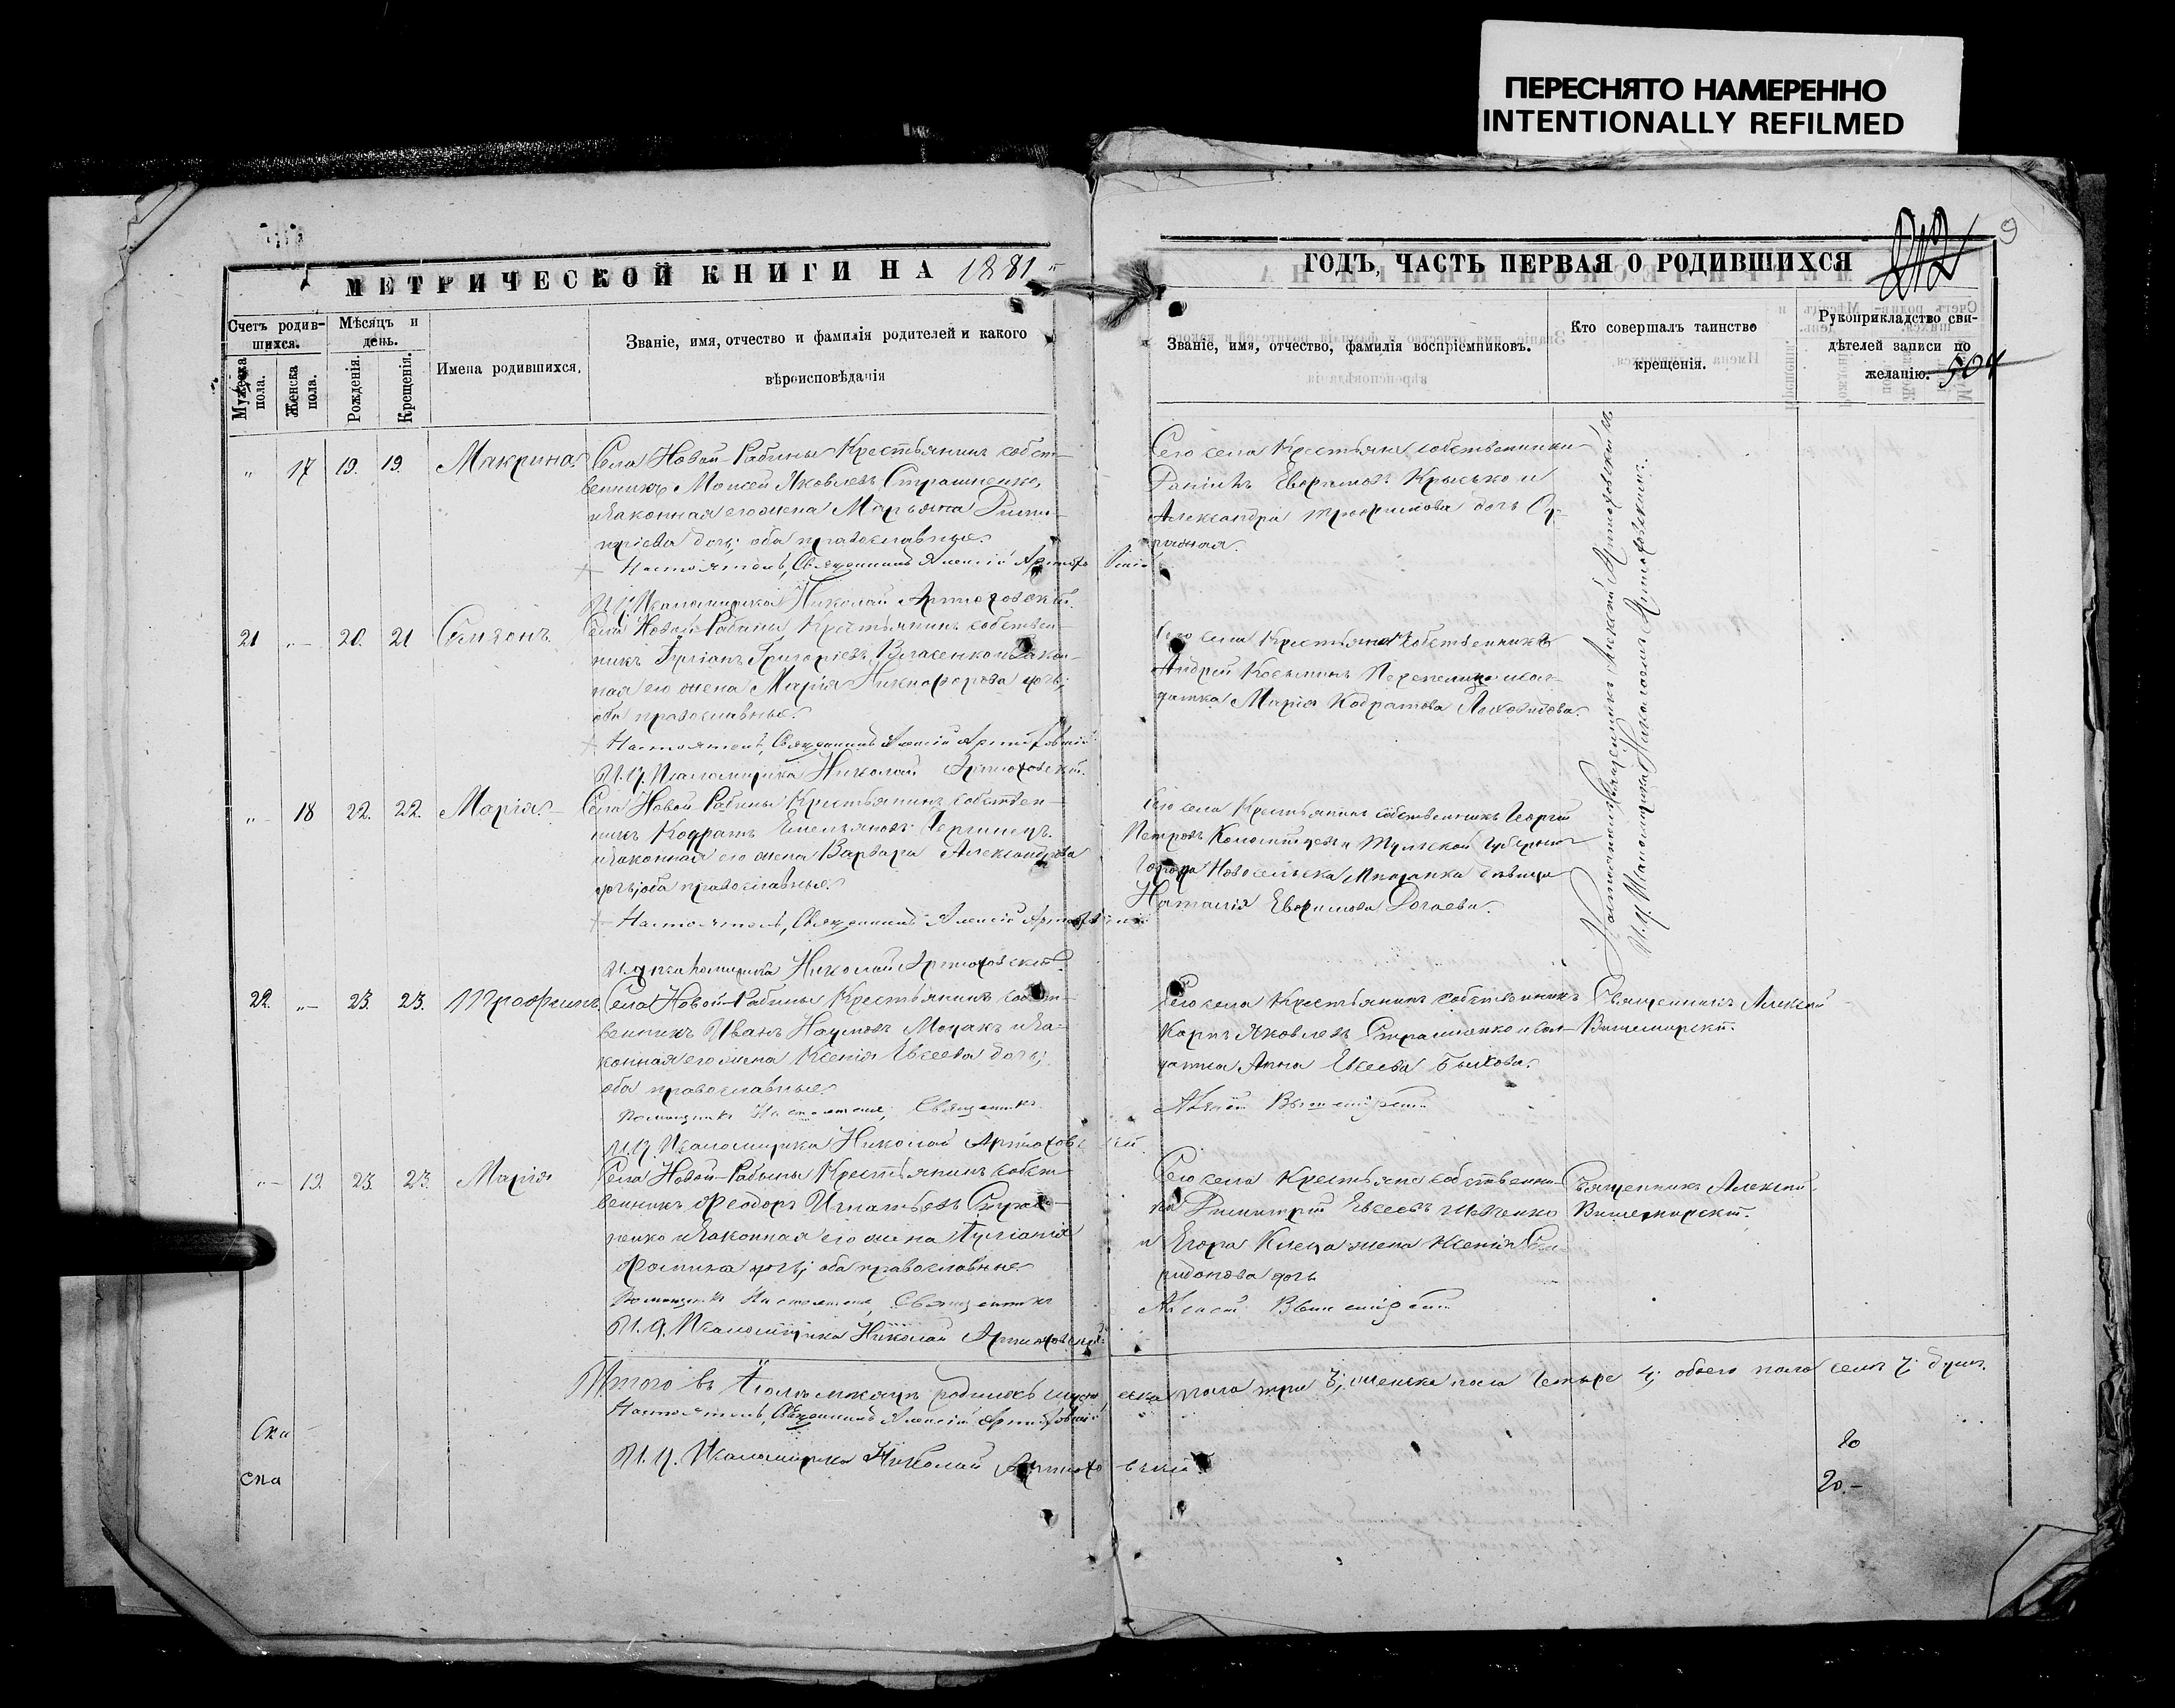 ПЕРЕСНЯТО НАМЕРЕННО
INTENTIONALLY REFILMED
МЕТРИЧЕСКОЙ КНИГИ НА 1881
ГОДЪ, ЧАСТЬ ПЕРВАЯ О РОДИВШИХСЯ
Счетъ родив-
шихся.
Мужска
пола.
Женска
пола.
Мѣсяцъ и
день.
Рожденія.
Крещенія.
Имена родившихся.
Званіе, имя, отчество и фамилія родителей и какого
вѣроисповѣданія
Званіе, имя, отчество, фамилія воспріемниковъ.
Кто совершалъ таинство
крещенія.
Рукоприкладство сви-
дѣтелей записи по
желанію. 504
„ 17 19. 19. Макрина Села Новой-Рабины Крестьянинъ собст-
венникъ Моисей Яковлевъ Страшненко,
и законная его жена Марьяна Дими-
тріева дочь; оба православные.
Настоятель, Священникъ Алексій Артюховскій
И. д. Псаломщика Николай Артюховскій.
Сего села Крестьяне собственники
Даніилъ Евфимовъ Крысько и
Александра Трофимова дочь
21 „ 20. 21 Самсонъ Села Новой-Рабины Крестьянинъ собствен-
никъ Іуліанъ Григорьевъ Власенко и закон-
ная его жена Марія Никифорова дочь;
оба православные.
Настоятель, Священникъ Алексій Артюховскій
И. д. Псаломщика Николай Артюховскій.
Сего села Крестьянинъ собственникъ
Андрей Косьминъ
Марія Кодратова
„ 18 22. 22. Марія Села Новой-Рабины Крестьянинъ собствен-
никъ Кодратъ Емельяновъ
и законная его жена Варвара Александрова
дочь; оба православные.
Настоятель, Священникъ Алексій Артюховскій
И. д. Псаломщика Николай Артюховскій.
Сего села Крестьянинъ собственникъ Георгій
Петровъ Коломійцевъ и Тульской губерніи
города Новосильска Мѣщанка дѣвица
Наталія Евфимова
Настоятель Священникъ Алексій Артюховскій
И. д. Псаломщика Николай Артюховскій.
22. „ 23. 23. Трофимъ. Села Новой-Рабины Крестьянинъ собст-
венникъ Иванъ Наумовъ Мочакъ и за-
конная его жена Ксенія Евсеева дочь;
оба православные.
Помощникъ Настоятеля, Священникъ
Алексій Вышемірскій
И. д. Псаломщика Николай Артюховскій
Сего села Крестьянинъ собственникъ
Карпъ Яковлевъ Страшненко и сол-
датка Анна Евсеева Быкова.
Священникъ Алексій
Вишемірскій.
„ 19. 23. 23. Марія Села Новой-Рабины Крестьянинъ собст-
венникъ Феодоръ Игнатьевъ
ненко и законная его жена Іуліанія
Фомина дочь; оба православные.
Помощникъ Настоятеля, Священникъ
Алексій Вышемірскій
И. д. Псаломщика Николай Артюховскій
Сего села Крестьяне собственни-
ки Димитрій Евсеевъ Шевченко
и Егора Клеца жена Ксенія Спи-
ридонова дочь
Священникъ Алексій
Вишемірскій.
Итого въ Іюлѣ мѣсяцѣ родилось мужеска пола три 3; женска пола четыре 4; обоего пола семь 7 душъ.
Настоятель, Священникъ Алексій Артюховскій
И. д. Псаломщика Николай Артюховскій
20
20.